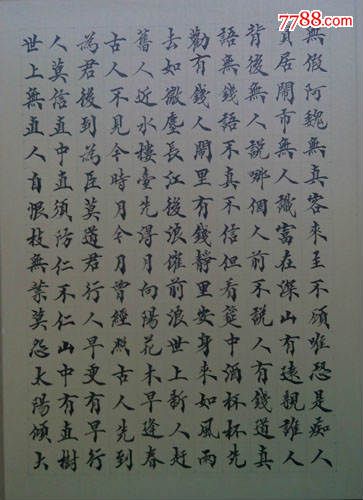 7788.com
無假阿魏無真客來至不頋唯恐是痴人
貧居鬧市無人識富在深山有遠親誰人
背後無人說哪個人前不說人有錢道真
語無錢語不真不信但看筵中酒杯杯先
勸有錢人鬧里有錢靜里安身來如風雨
去如微塵長江後浪催前浪世上新人赶
舊人近水樓臺先得月向陽花木早逢春
古人不見今時月今月曾經照古人先到
為君後到為臣莫道君行人早更有早行
人莫信直中直須防仁不仁山中有直樹
世上無直人自恨枝無葉莫怨太陽傾大